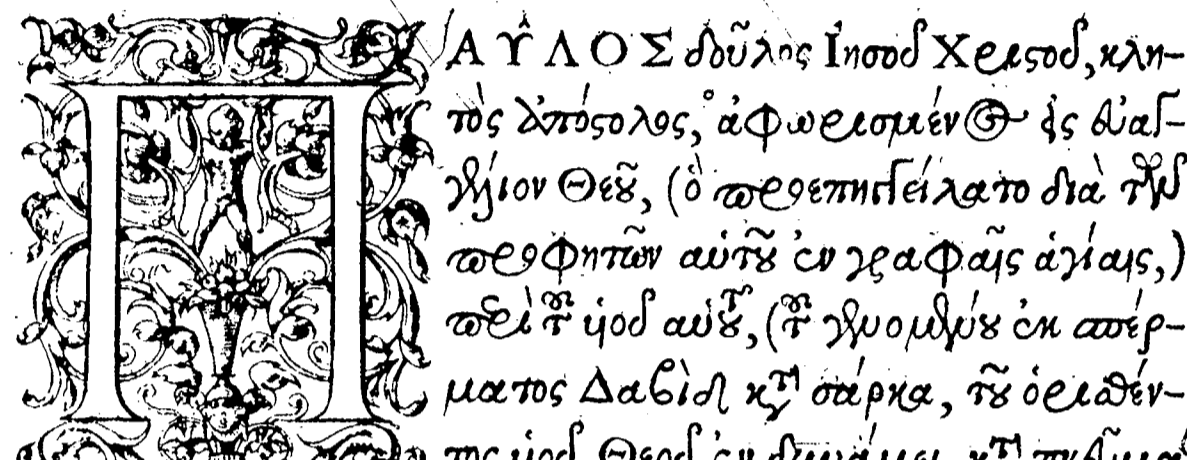 ΠΑΥ͂ΛΟΣ δοῦλος Ἰησοῦ Χριστοῦ, κλη-
τὸς ἀπόστολος, ° ἀφωρισμένος εἰς εὐαγ-
γέλιον Θεοῦ, (ὃ προεπηγγείλατο διὰ τῶν
προφητῶν αὑτοῦ ἐν γραφαῖς ἁγίαις,)
περὶ τοῦ υἱοῦ αὑτοῦ, (τοῦ γενομένου ἐκ σπέρ-
ματος Δαβὶδ κατὰ σάρκα, τοῦ ὁρισθέν-
τος υἱοῦ Θεοῦ ἐν δυνάμει, κατὰ πνεῦμα